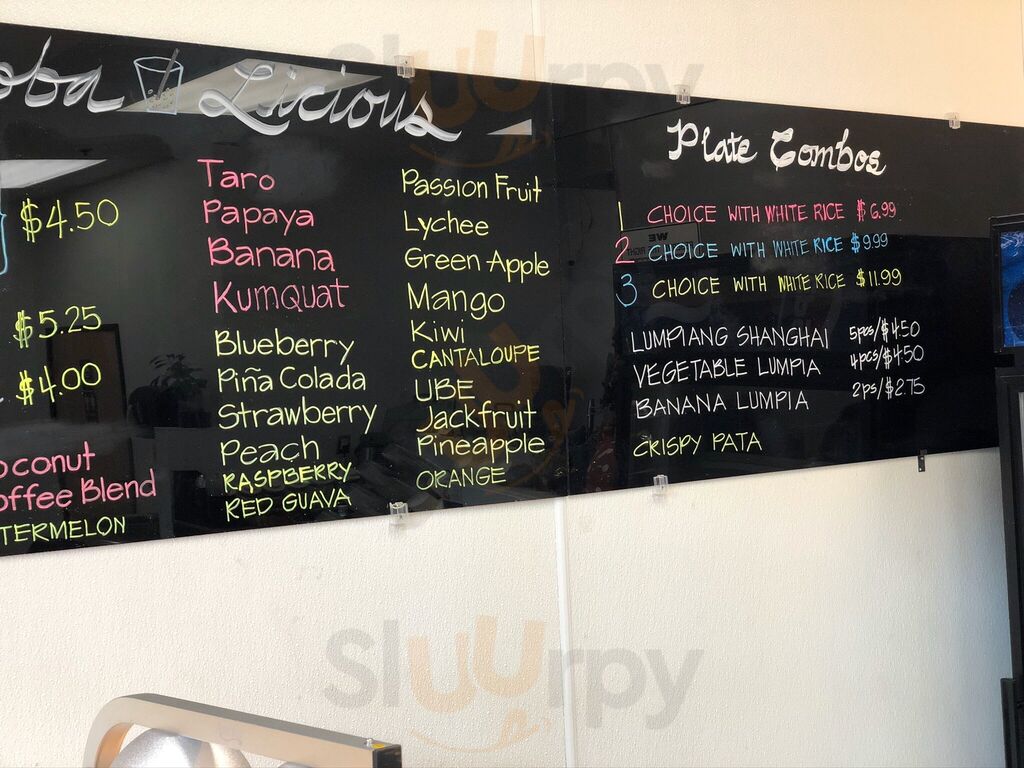 Licious
$4.50
$5.25
$4.00
Coffee Blend
Taro
Papaya
Banana
Kumquat
Blueberry
Piña Colada
Strawberry
Peach
RASPBERRY
RED GUAVA
Passion Fruit
Lychee
Green Apple
Mango
Kiwi
CANTALOUPE
UBE
Jackfruit
Pineapple
ORANGE
Plate Combos
1 CHOICE WITH WHITE RICE $6.99
2 CHOICE WITH WHITE RICE $9.99
3 CHOICE WITH WHITE RICE $11.99
LUMPIANG SHANGHAI 5pcs/$4.50
VEGETABLE LUMPIA 4pcs/$4.50
BANANA LUMPIA 2ps/$2.75
CRISPY PATA
Sluurpy
Sluurpy